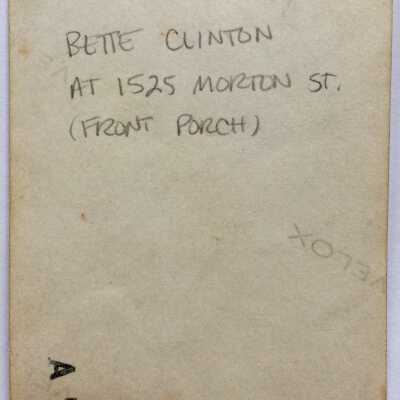 BETTE CLINTON
AT 1525 MORTON ST.
(FRONT PORCH)
VELOX
A